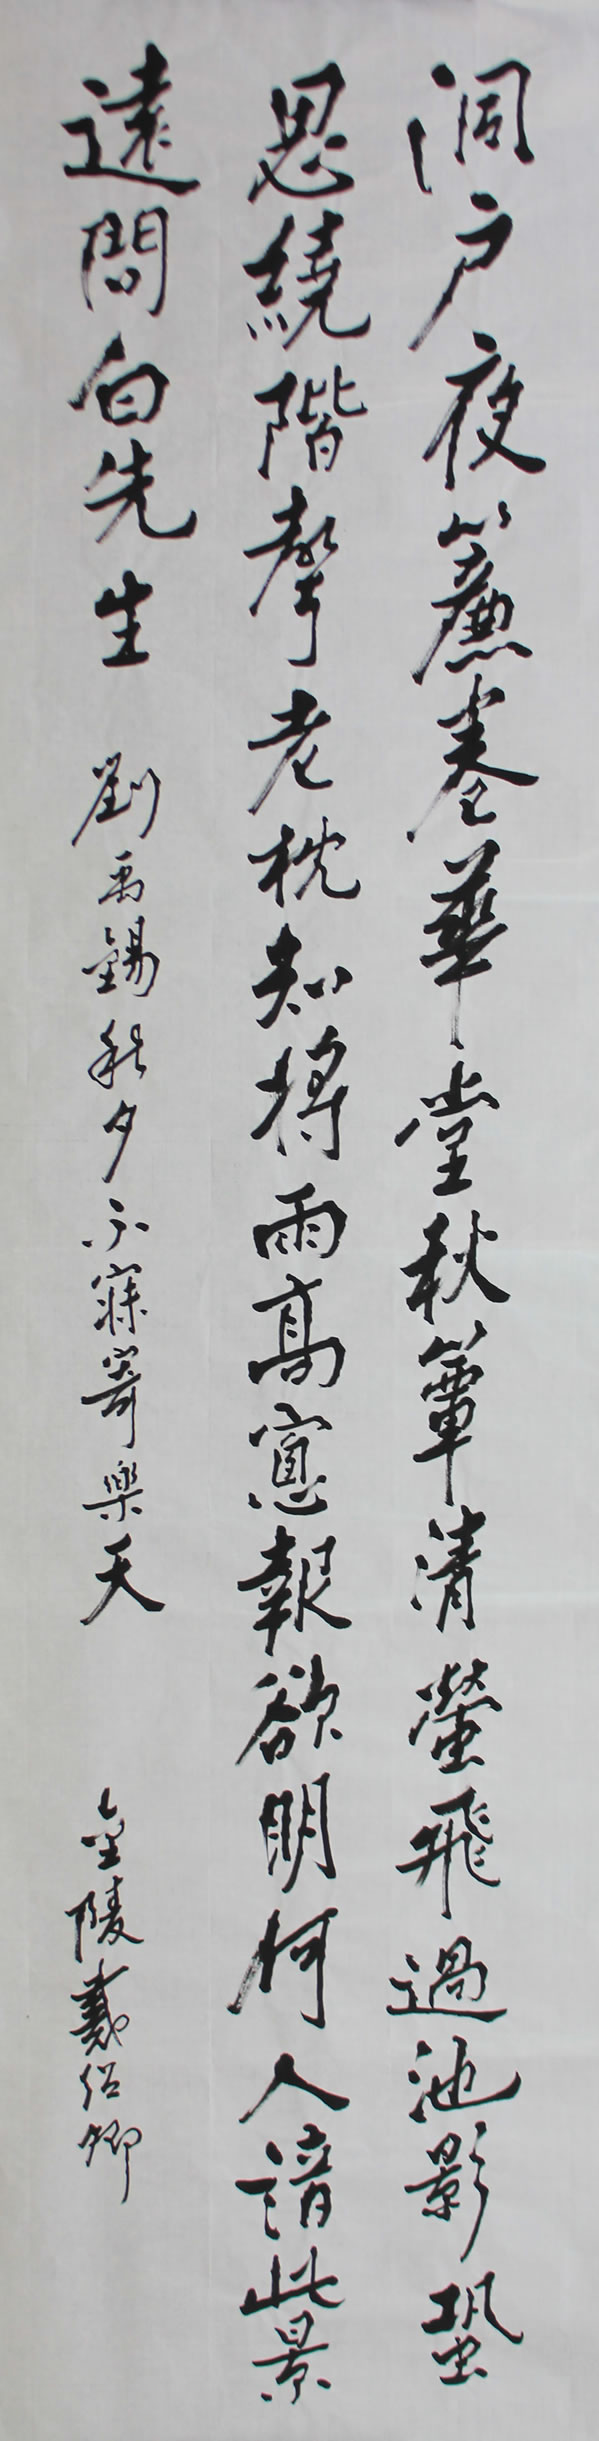 洞戶夜簾卷華堂秋簟清螢飛過池影蛩
思繞階聲老枕知將雨高窻報欲明何人諳此景
遠問白先生 劉禹錫秋夕不寐寄樂天 金陵戴紹卿